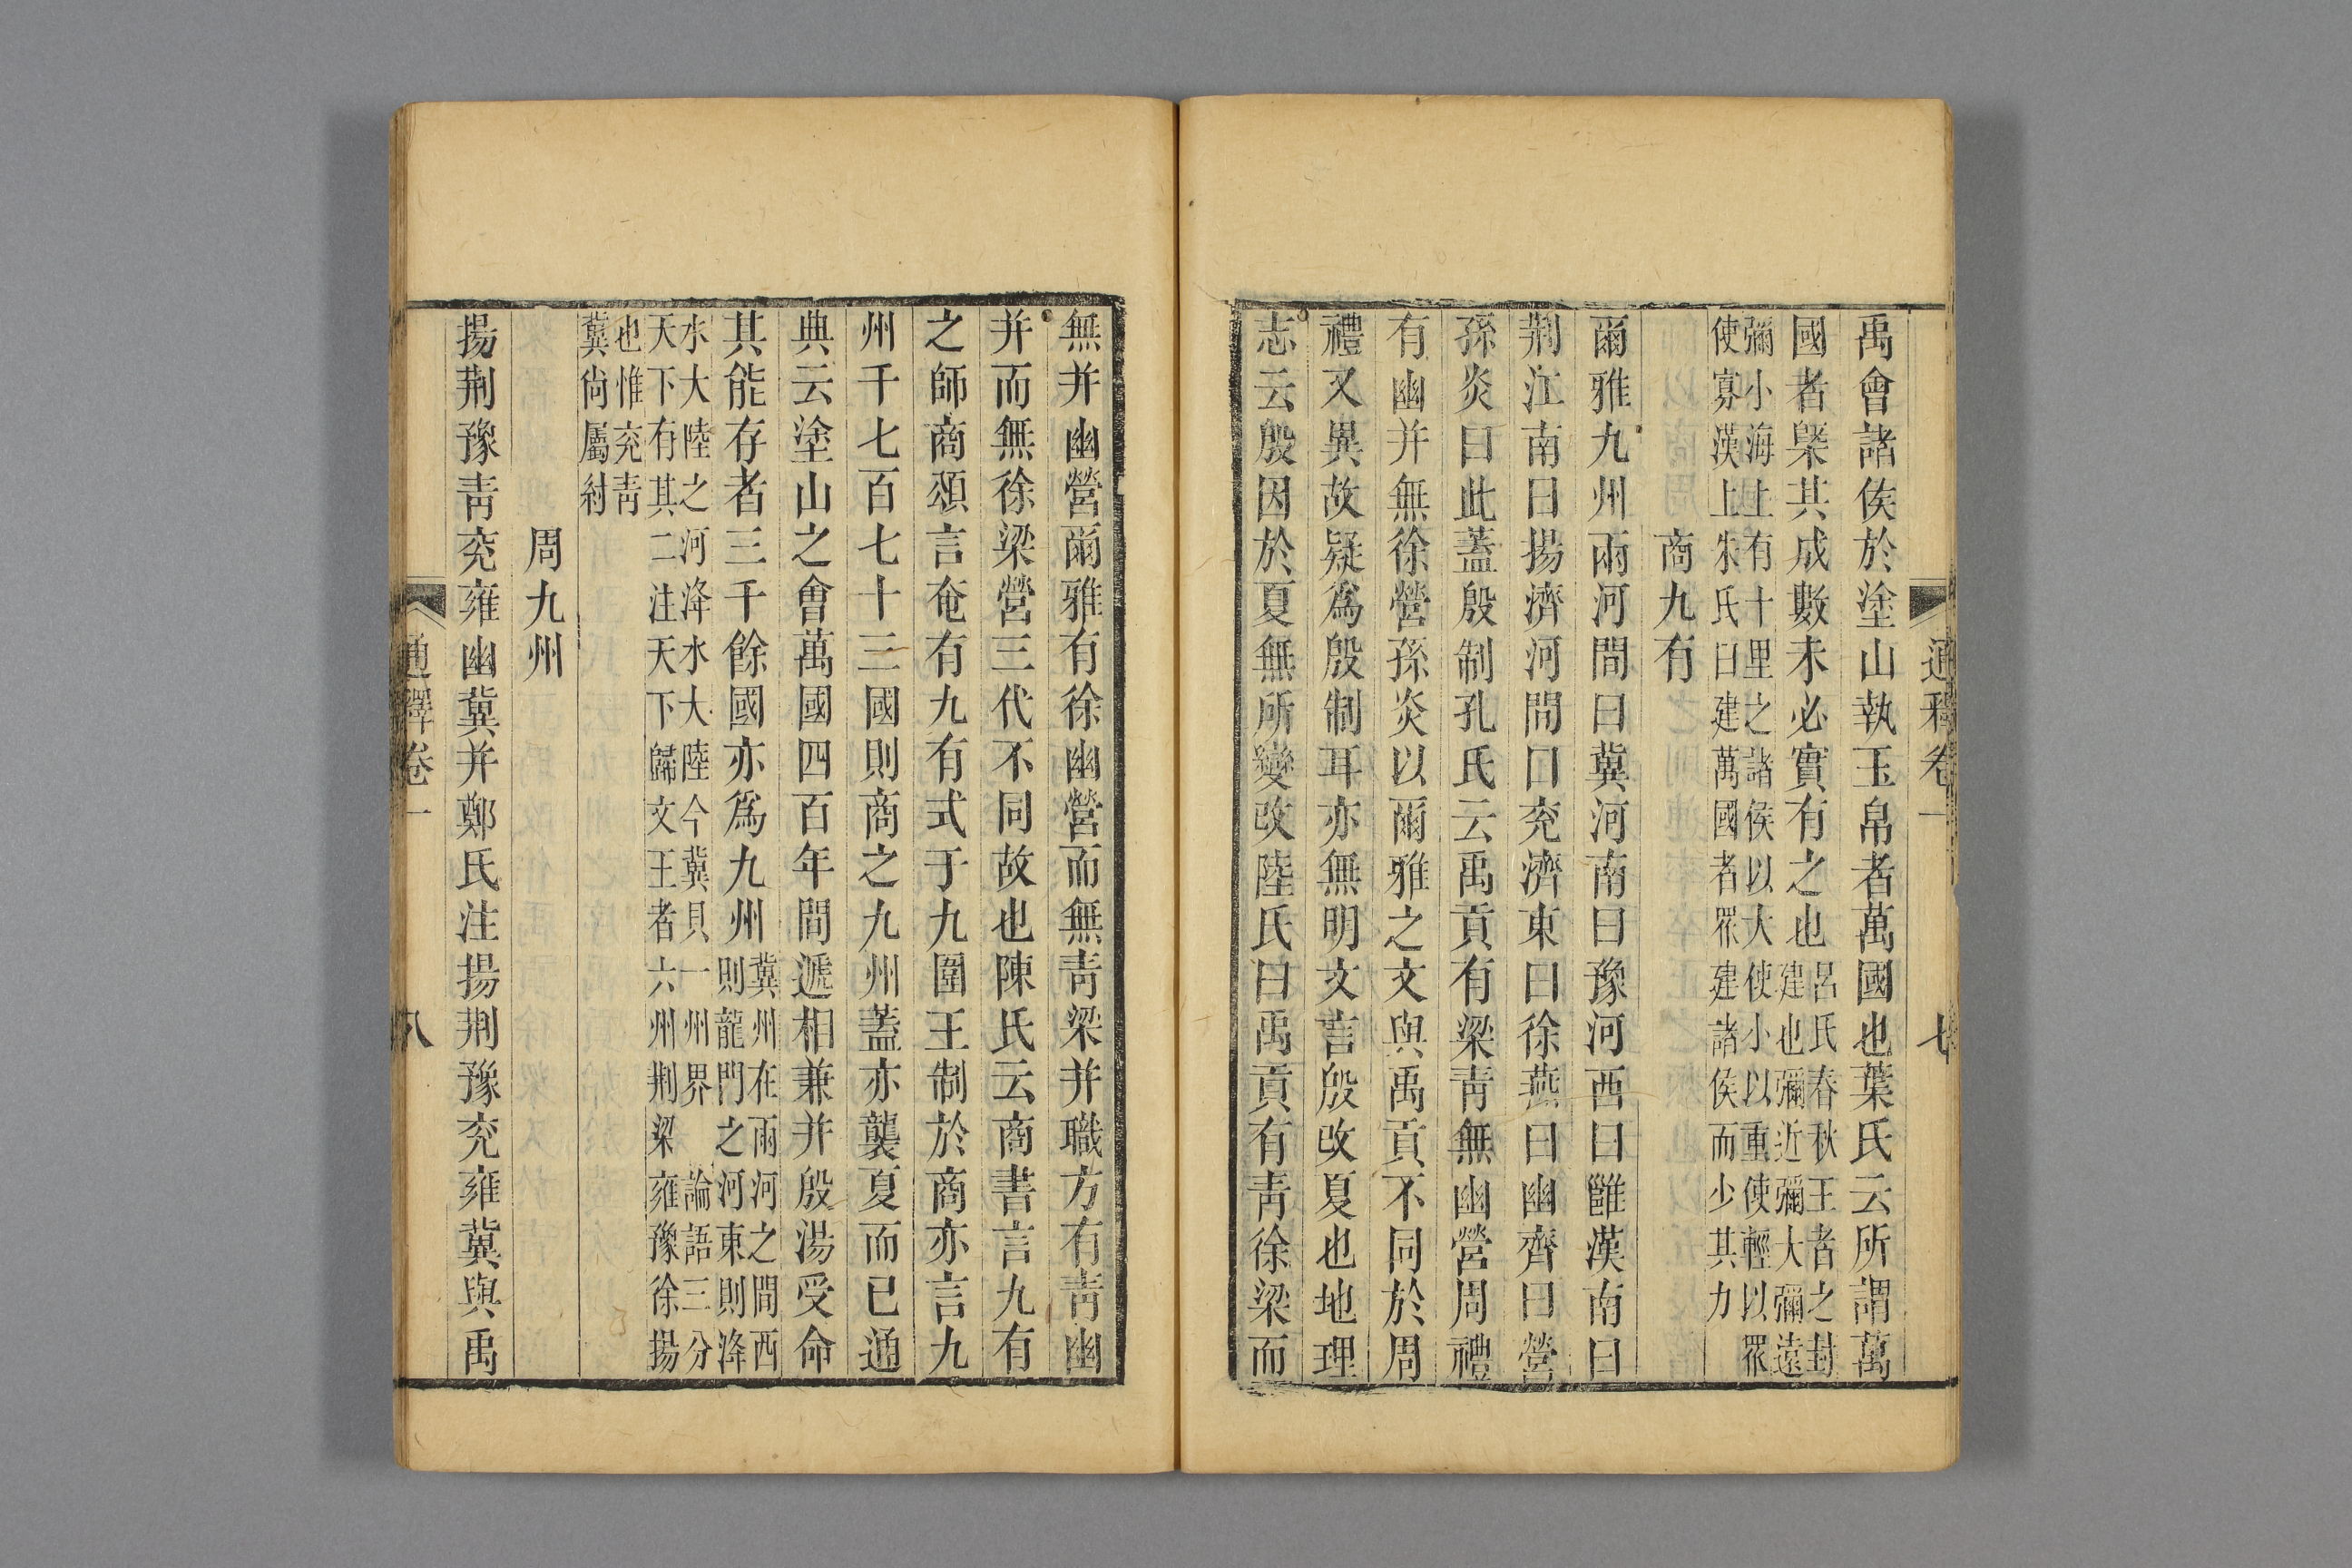 通釋卷一 七
禹會諸侯於塗山執玉帛者萬國也葉氏云所謂萬
國者舉其成數未必實有之也呂氏春秋王者之封
建也彌近彌大彌遠
彌小海上有十里之諸侯以大使小以重使輕以眾
使寡漢上朱氏曰建萬國者眾建諸侯而少其力
商九有
爾雅九州兩河間曰冀河南曰豫河西曰雝漢南曰
荆江南曰揚濟河間曰兖濟東曰徐燕曰幽齊曰營
孫炎曰此蓋殷制孔氏云禹貢有梁青無幽營周禮
有幽并無徐營孫炎以爾雅之文與禹貢不同於周
禮又異故疑為殷制耳亦無明文言殷改夏也地理
志云殷因於夏無所變改陸氏曰禹貢有青徐梁而
無并幽營爾雅有徐幽營而無青梁并職方有青幽
并而無徐梁營三代不同故也陳氏云商書言九有
之師商頌言奄有九有式于九圍王制於商亦言九
州千七百七十三國則商之九州蓋亦襲夏而已通
典云塗山之會萬國四百年間遞相兼并殷湯受命
其能存者三千餘國亦為九州冀州在兩河之間西
則龍門之河東則洚
水大陸之河洚水大陸今冀貝一州界 論語三分
天下有其二注天下歸文王者六州荆梁雍豫徐揚
也惟兖青
冀尚屬紂
周九州
揚荆豫青兖雍幽冀并鄭氏注揚荆豫兖雍冀與禹
通釋卷一 八